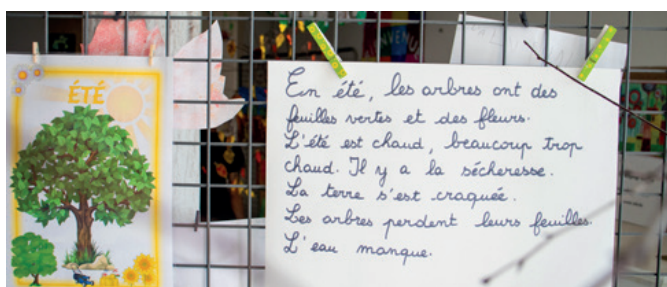 BIENVENU
ÉTÉ
En été, les arbres ont des
feuilles vertes et des fleurs.
L'été est chaud, beaucoup trop
chaud. Il y a la sécheresse.
La terre s'est craquée.
Les arbres perdent leurs feuilles.
L'eau manque.